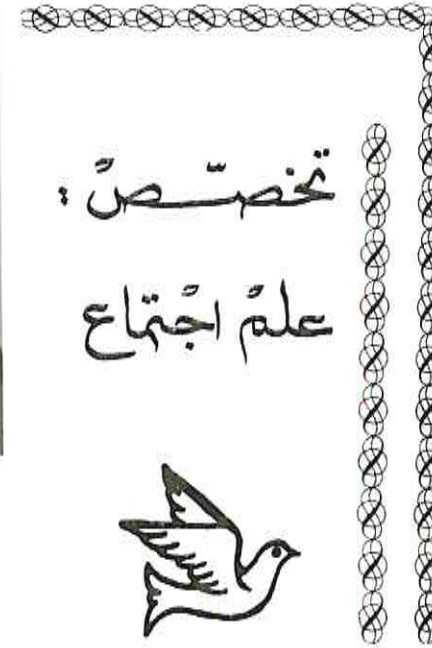 تخصّص :
علم اجتماع